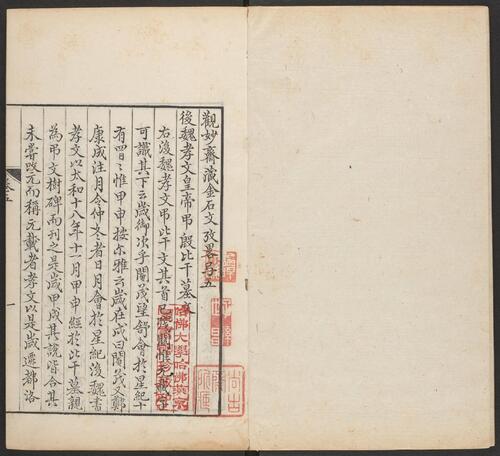 觀妙齋藏金石文攷畧卷五
後魏孝文皇帝弔殷比干墓文
右後魏孝文弔比干文其首已殘闕惟元載字
可識其下云歲御次乎閹茂望舒會於星紀十
有四日惟甲申按尔雅云歲在戌曰閹茂又鄭
康成注月令仲冬者日月會於星紀後魏書
孝文以太和十八年十一月甲申經於比干墓親
為弔文樹碑而刊之是歲甲戌其說皆合其
未甞改元而稱元載者孝文以是歲遷都洛
卷五
一
哈佛大學哈佛燕京